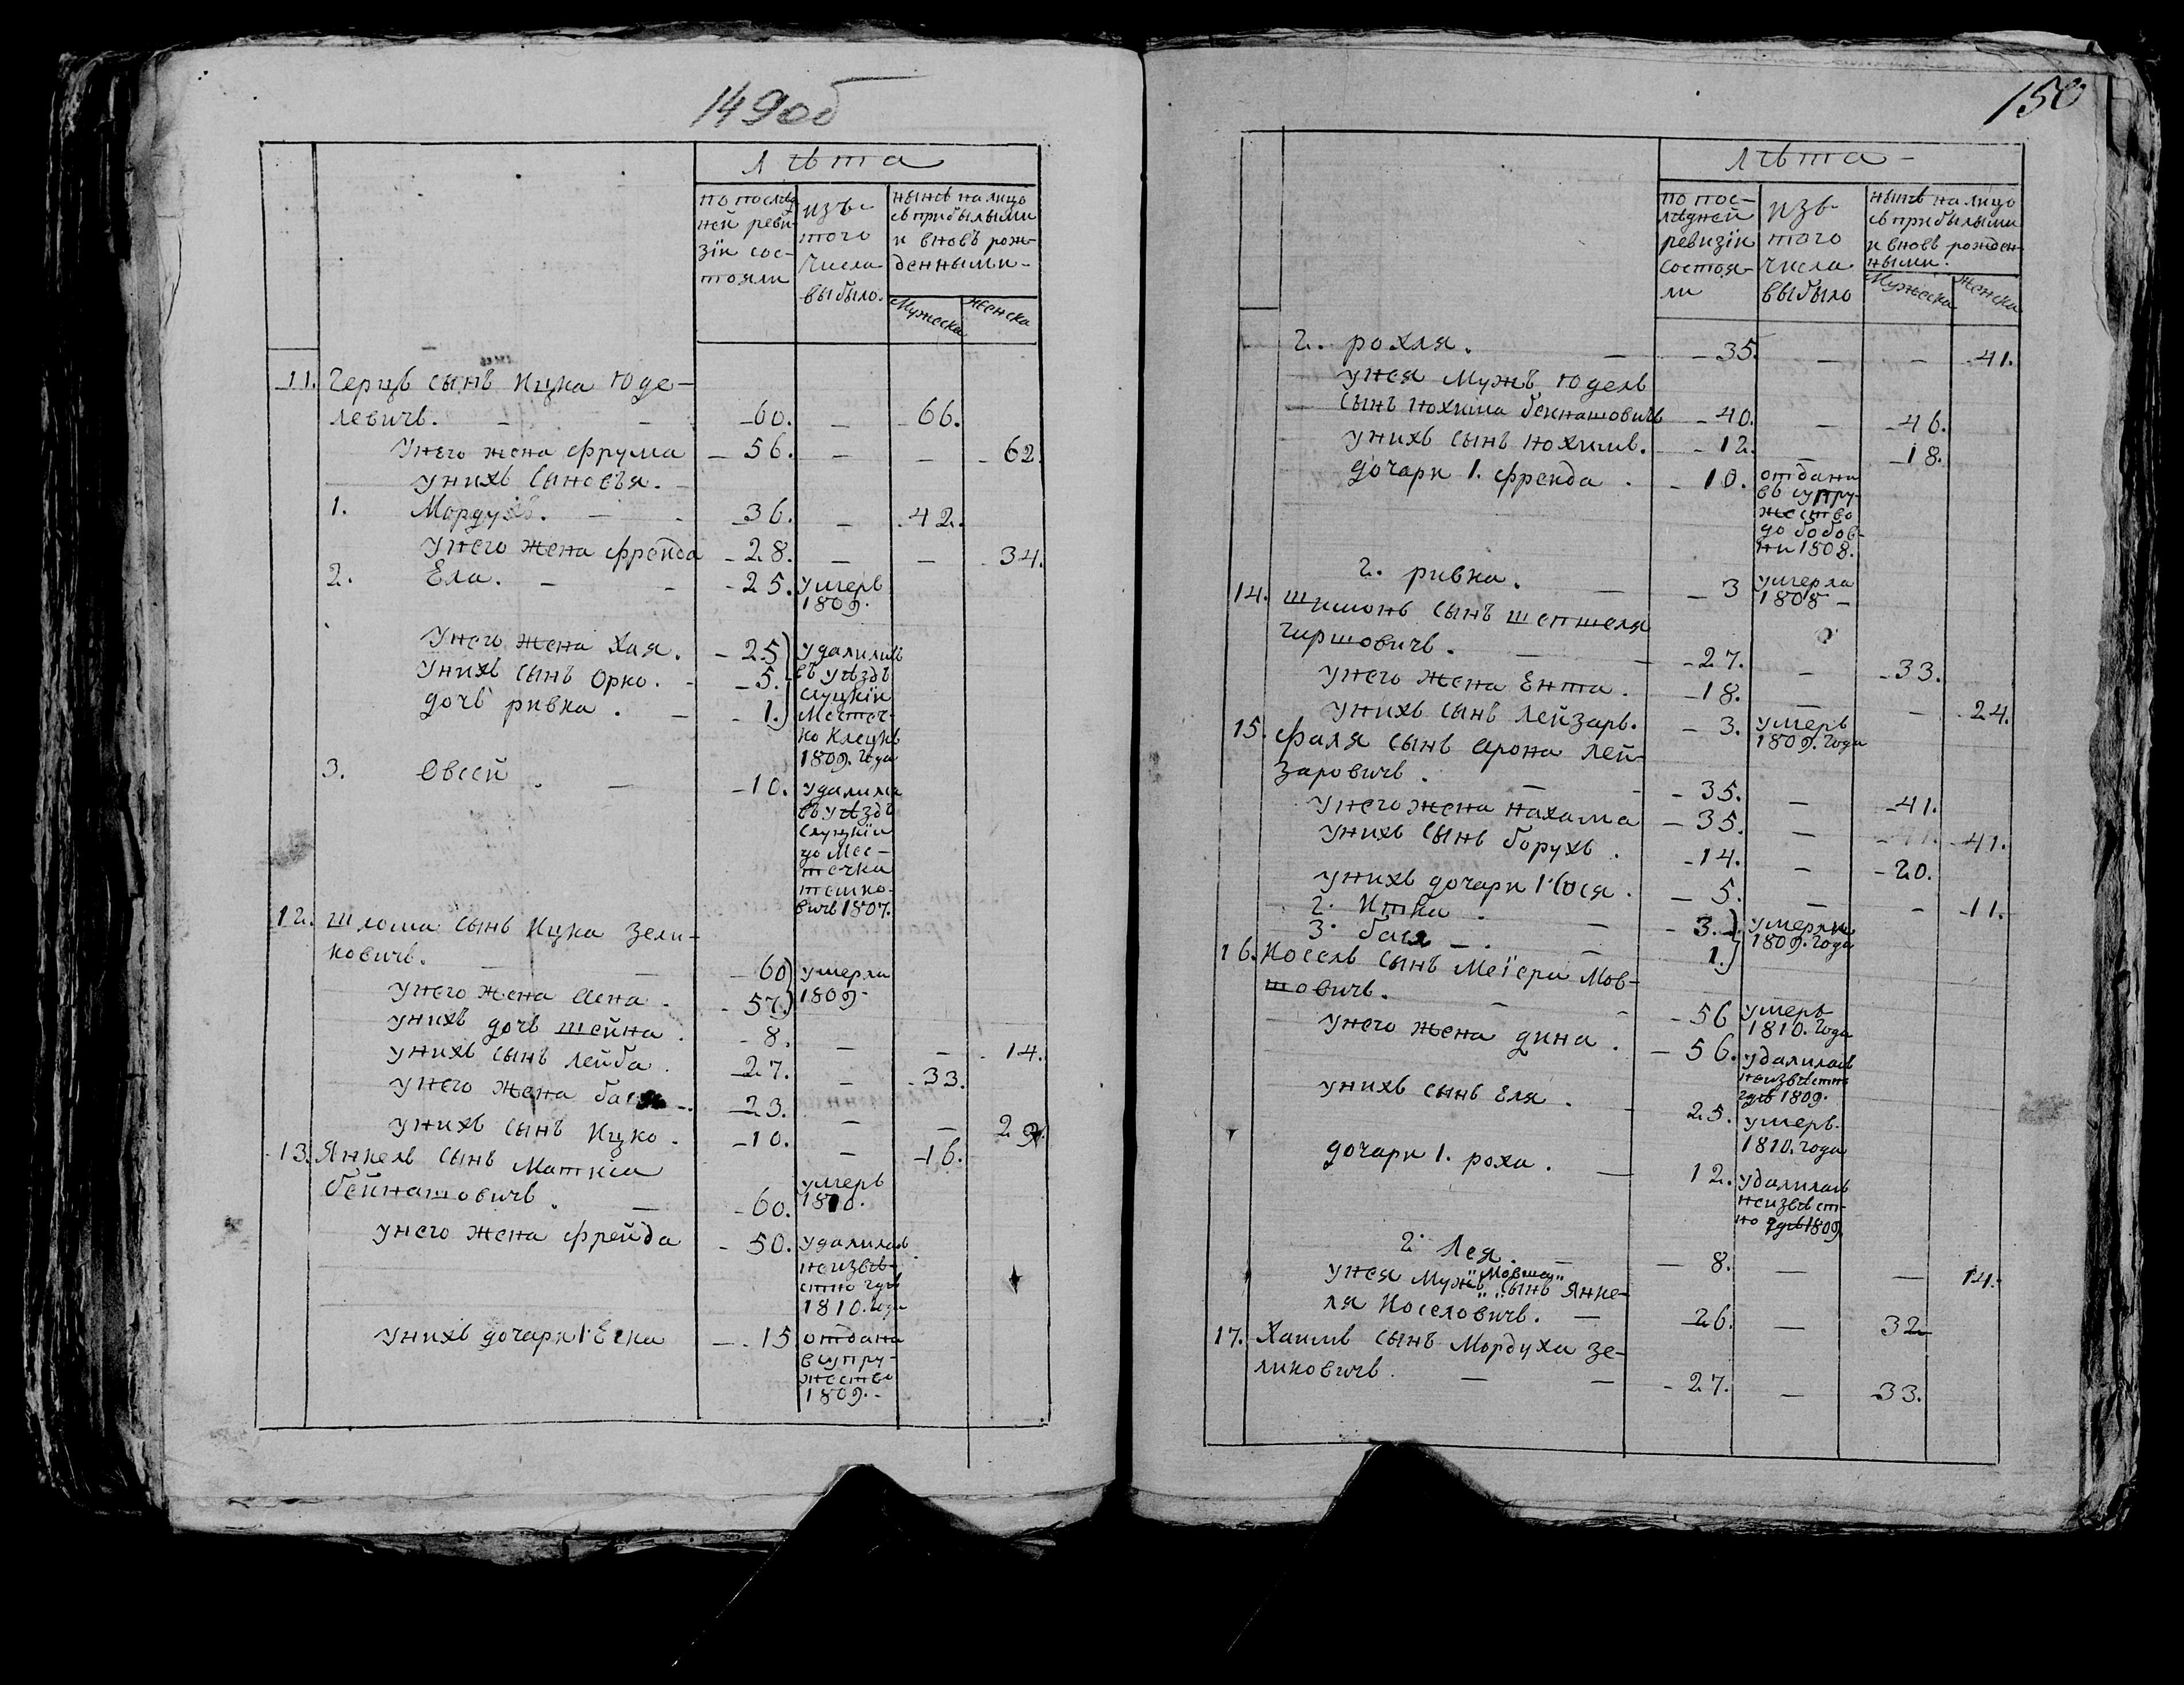 149об
Лѣта
по послѣд
ней реви
зіи сос-
тояли
изъ
того
числа
выбыло.
нынѣ на лицо
съ прибылыми
и вновь рож-
денными
Мужеска
Женска
11. Герцъ сынъ Ицка Юде-
левичъ. 60. — 66.
У него жена Фрума — 56. — — 62.
У нихъ сыновья.
1. Мордухъ. — 36. — 42.
У него жена Фрейда 28. — — 34.
2. Ела. — 25. умеръ
1809.
У него жена Хая. 25 удалились
У нихъ сынъ Орко. 5. въ уѣздъ
слуцкій
дочь ривка. 1. Местеч-
ко Клецкъ
1809. года
3. Овсей. — 10. удалился
въ уѣздъ
слуцкій
до Мес-
течка
тимко-
вичъ 1807.
12. Шлома сынъ Ицка Зели-
ковичъ. 60 умерли
У него жена Асна. 57. 1809
У нихъ дочь шейна. 8. — — 14.
У нихъ сынъ лейба. 27. — 33.
У него жена бася 23. — — 29.
У нихъ сынъ Ицко. 10. — 16.
13. Янкель сынъ Маткіи
бейнашовичъ. — 60. умеръ
1810.
У него жена Фрейда 50. удалилась
неизвѣ
стно гдѣ
1810. года
У нихъ дочари 1. Еска — 15 отдана
в супру-
жество
1809.
150
Лѣта
по пос-
лѣдней
ревизіи
состоя-
ли
изъ
того
числа
выбыло
нынѣ на лицо
съ прибылыми
и вновь рожден-
ными.
Мужеска
Женска
2. рохля. — 35. — — 41.
У нея мужъ Юдель
сынъ Нохима бейнашовичъ 40. — 46.
У нихъ сынъ нохимъ. 12. — 18.
дочари 1. фрейда. 10. отдана
въ супру-
жество
до бобов-
ни 1808.
2. ривка. — 3 умерла
1808 —
14. шимонъ сынъ шепшеля
гиршовичъ. — 27. — 33.
У него жена Ента. 18. — — 24.
У нихъ сынъ лейзаръ. 3. умеръ
1809. года
15. Фаля сынъ Арона лей-
заровичъ. — 35. — 41.
У него жена нахама 35. — 41.
У нихъ сынъ борухъ. 14. — 20.
У нихъ дочари 1. Сося. 5. — — 11.
2. Итка. — 3. умерли
3. бася — 1. 1809. года
16. Носель сынъ Меіера Мов-
шовичъ. — 56 умеръ
1810. года
У него жена дина. 56. удалилась
неизвѣстно
гдѣ 1809.
У нихъ сынъ Еля. 25. умеръ
1810. года
дочари 1. роха. — 12. удалилась
неизвѣст-
но гдѣ 1809.
2. Лея. — 8. — — 14.
"Мовша"
У нея мужъ сынъ Янке-
ля Носеловичъ. — 26. — 32
17. Хаимъ сынъ Мордуха зе-
ликовичъ. — 27. — 33.